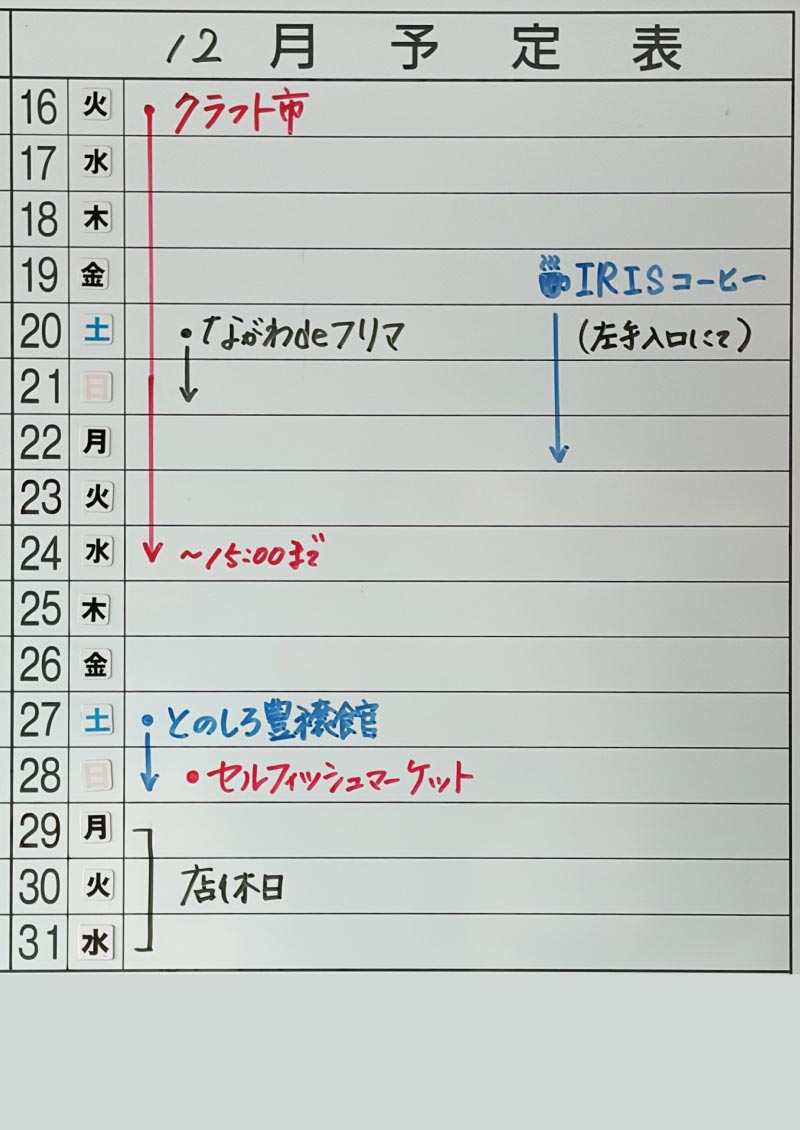 12月予定表
16 火 クラフト市
17 水
18 木
19 金 IRISコーヒー
20 土 ながわdeフリマ (左手入口にて)
21 日
22 月
23 火
24 水 ~15:00まで
25 木
26 金
27 土 とのしろ豊穣館
28 日 セルフィッシュマーケット
29 月
30 火 店休日
31 水